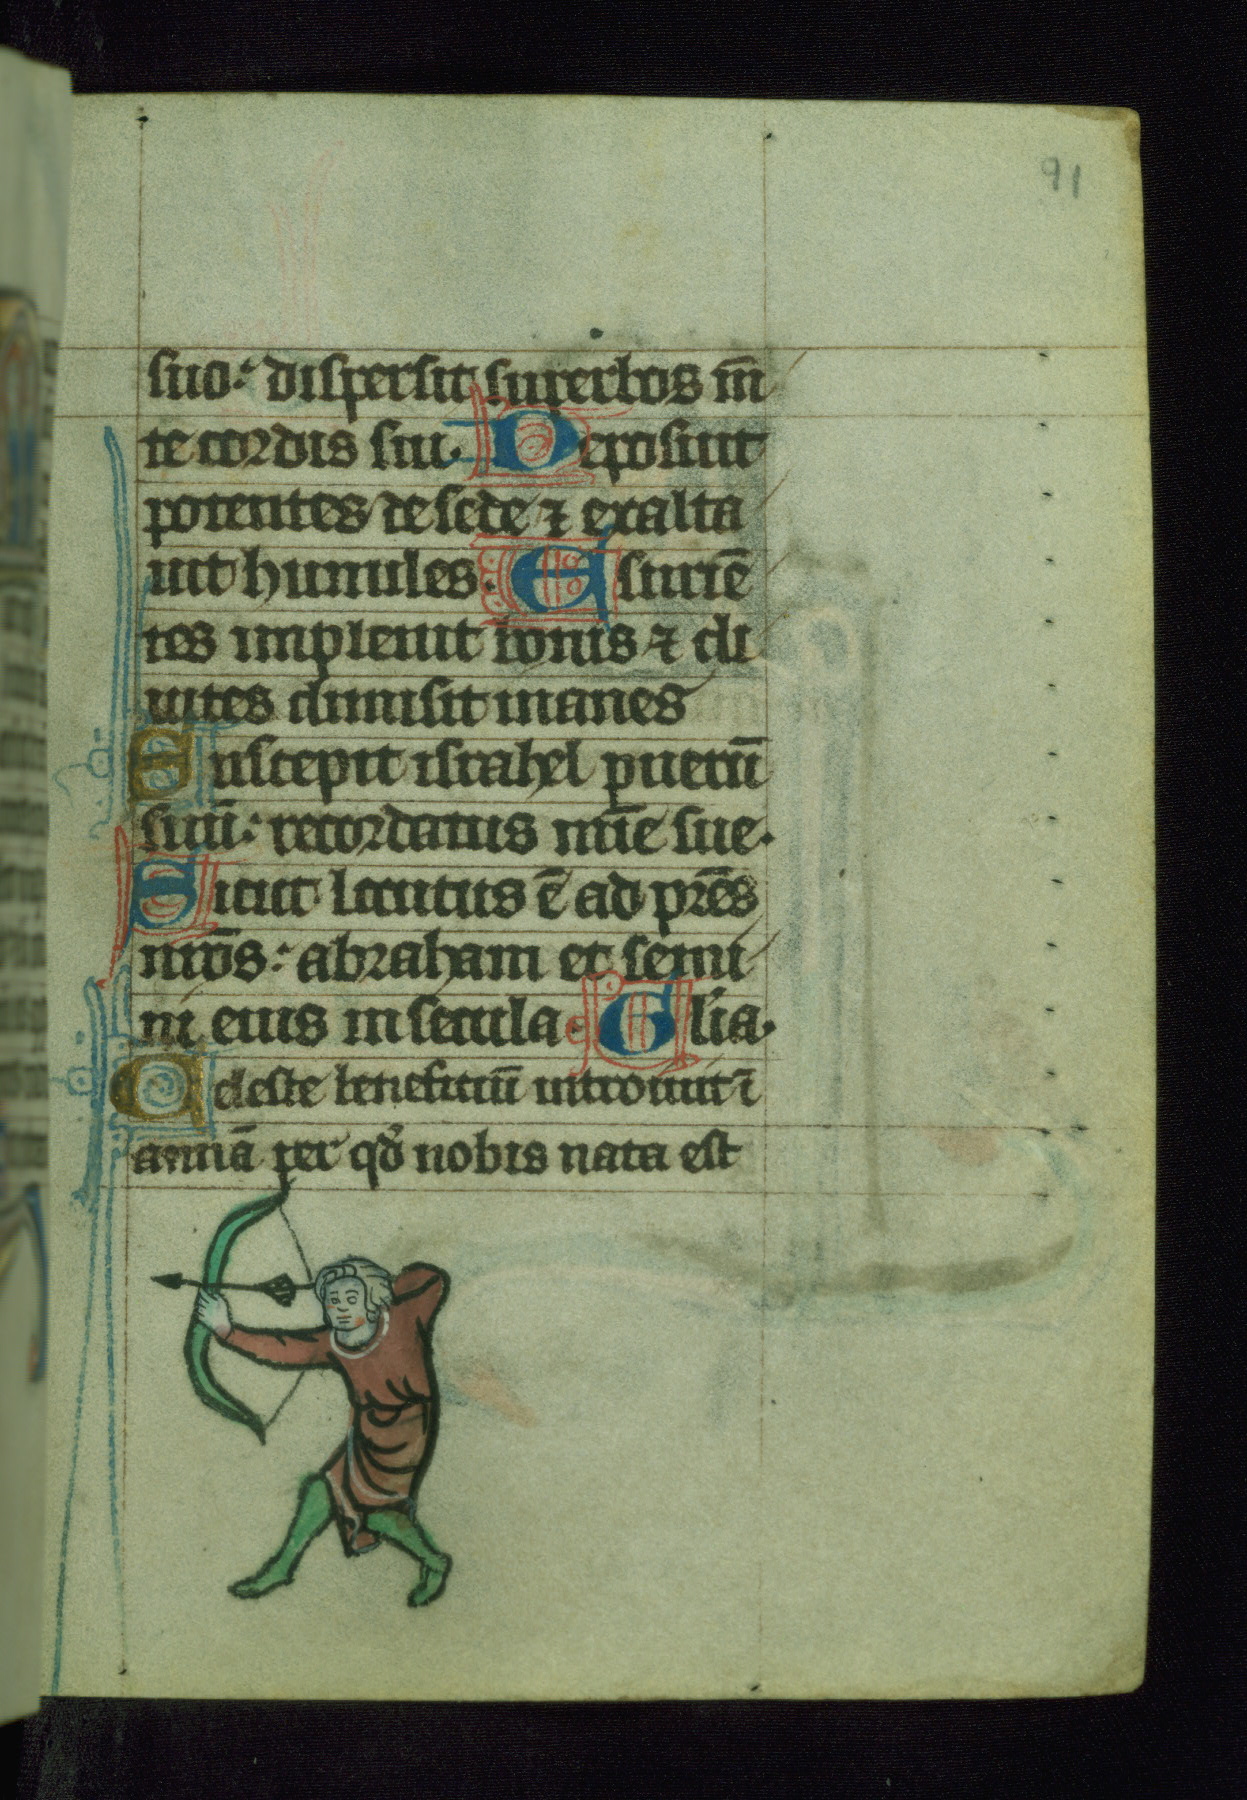 91
suo: dispersit superbos m̄
te cordis sui. Deposuit
potentes de sede ⁊ exalta
uit humiles. Esuriē
tes impleuit bonis ⁊ di
uites dimisit inanes
Suscepit israhel puerū
suū: recordatus mīe sue.
Sicut locutus ē ad pr̄es
nr̄os: abraham et semi
ni eius in secula. Glīa.
Celeste beneficiū introiuit ī
annā per qd̄ nobis nata est